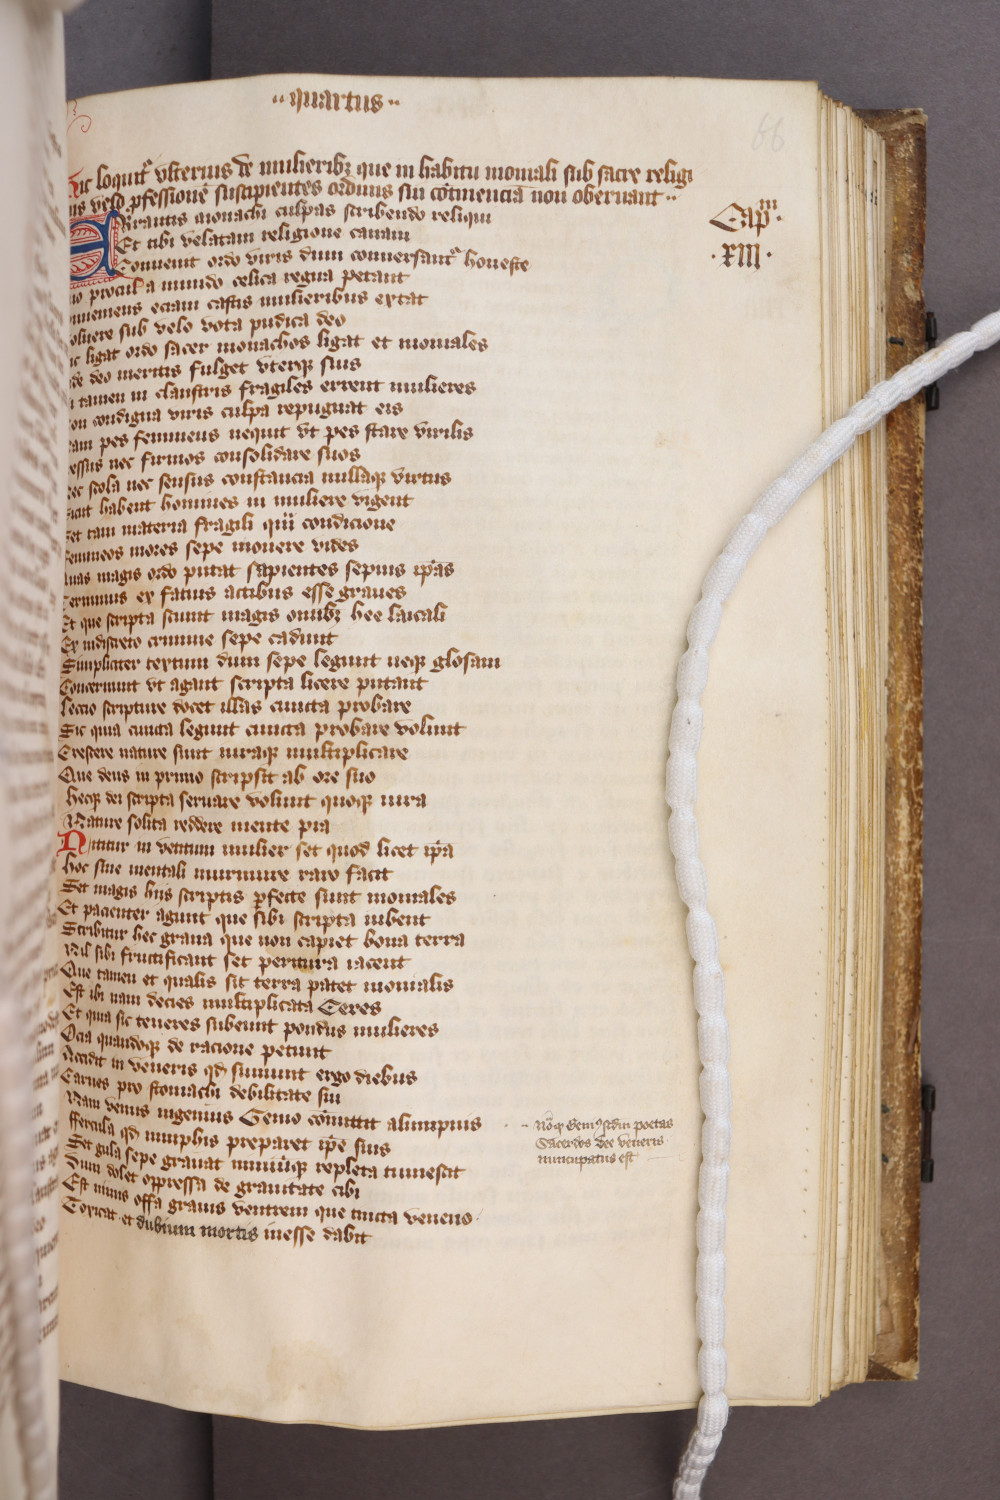 ·· quartus ··
66
Hic loquitur vlterius de mulieribus que in habitu moniali sub sacre religi
nis velo professionem suscipientes ordinis sui continenciam non obseruant ··
Capm.
·XIII·
Errantis monachi culpas scribendo reliqui
Et tibi velatam religione canam
Conuenit ordo viris dum conuersantur honeste
procul a mundo celica regna petant
eciam castis mulieribus extat
sub velo vota pudica deo
ligat ordo sacer monachos ligat et moniales
deo meritis fulget vterque suis
tamen in claustris fragiles errent mulieres
condigna viris culpa repugnat eis
pes femineus nequit vt pes stare virilis
nec firmos consolidare suos
scola nec sensus constancia nullaque virtus
habent homines in muliere vigent
Set tam materia fragili quam condicione
femineos mores sepe mouere vides
magis ordo putat sapientes sepius ipsas
Cernimus ex fatuis actibus esse graues
Et que scripta sciunt magis omnibus hee laicali
Ex indiscreto crimine sepe cadunt
Simpliciter textum dum sepe legunt neque glosam
Concernunt vt agant scripta licere putant
Leccio scripture docet illas cuncta probare
Sic quia cuncta legunt cuncta probare volunt
Crescere nature sunt iuraque multiplicare
Que deus in primo scripsit ab ore suo
Hecque dei scripta seruare volunt quoque iura
Nature solita reddere mente pia
Nititur in vetitum mulier set quod licet ipsa
Hoc sine mentali murmure raro facit
Set magis hiis scriptis perfecte sunt moniales
Et pacienter agunt que sibi scripta iubent
Scribitur hec grana que non capiet bona terra
Nil sibi fructificant set peritura iacent
Que tamen et qualis sit terra patet monialis
Est ibi nam decies multiplicata Ceres
Et quia sic teneres subeunt pondus mulieres
Ocia quandoque de racione petunt
Accidit in veneris quod sumunt ergo diebus
Carnes pro stomachi debilitate sui
Nam venus ingenuis Genio comittit alumpnis
Fercula quod nimphis preparet ipse suis
Set gula sepe grauat nimiumque repleta tumescit
Dum dolet oppressa de grauitate cibi
Est nimis offa grauis ventrem que tincta veneno
Toxicat et dubium mortis inesse dabit
Nota quod Genius secundum poetas
Sacerdos dee veneris
nuncupatus est